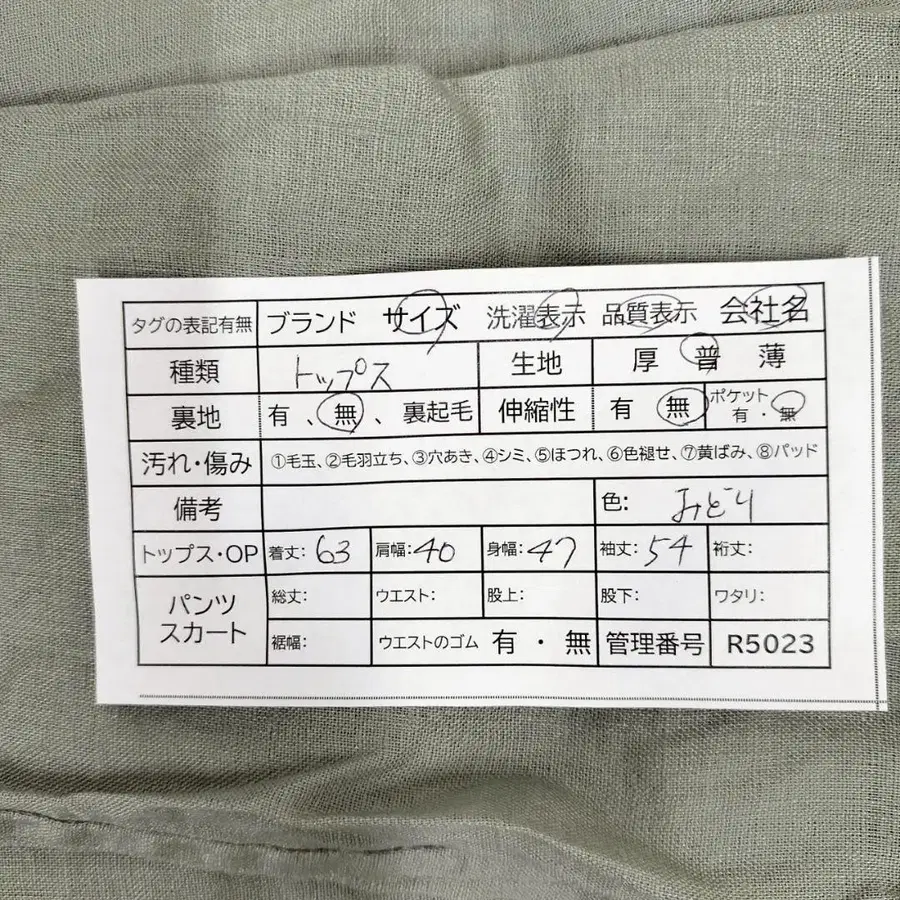 タグの表記有無 ブランド サイズ 洗濯表示 品質表示 会社名
種類 トップス 生地 厚 普 薄
裏地 有 、無 、裏起毛 伸縮性 有 無 ポケット 有・無
汚れ・傷み ①毛玉、②毛羽立ち、③穴あき、④シミ、⑤ほつれ、⑥色褪せ、⑦黄ばみ、⑧パッド
備考 色: みどり
トップス・OP 着丈: 63 肩幅: 40 身幅: 47 袖丈: 54 裄丈:
パンツ スカート 総丈: ウエスト: 股上: 股下: ワタリ:
裾幅: ウエストのゴム 有 ・ 無 管理番号 R5023